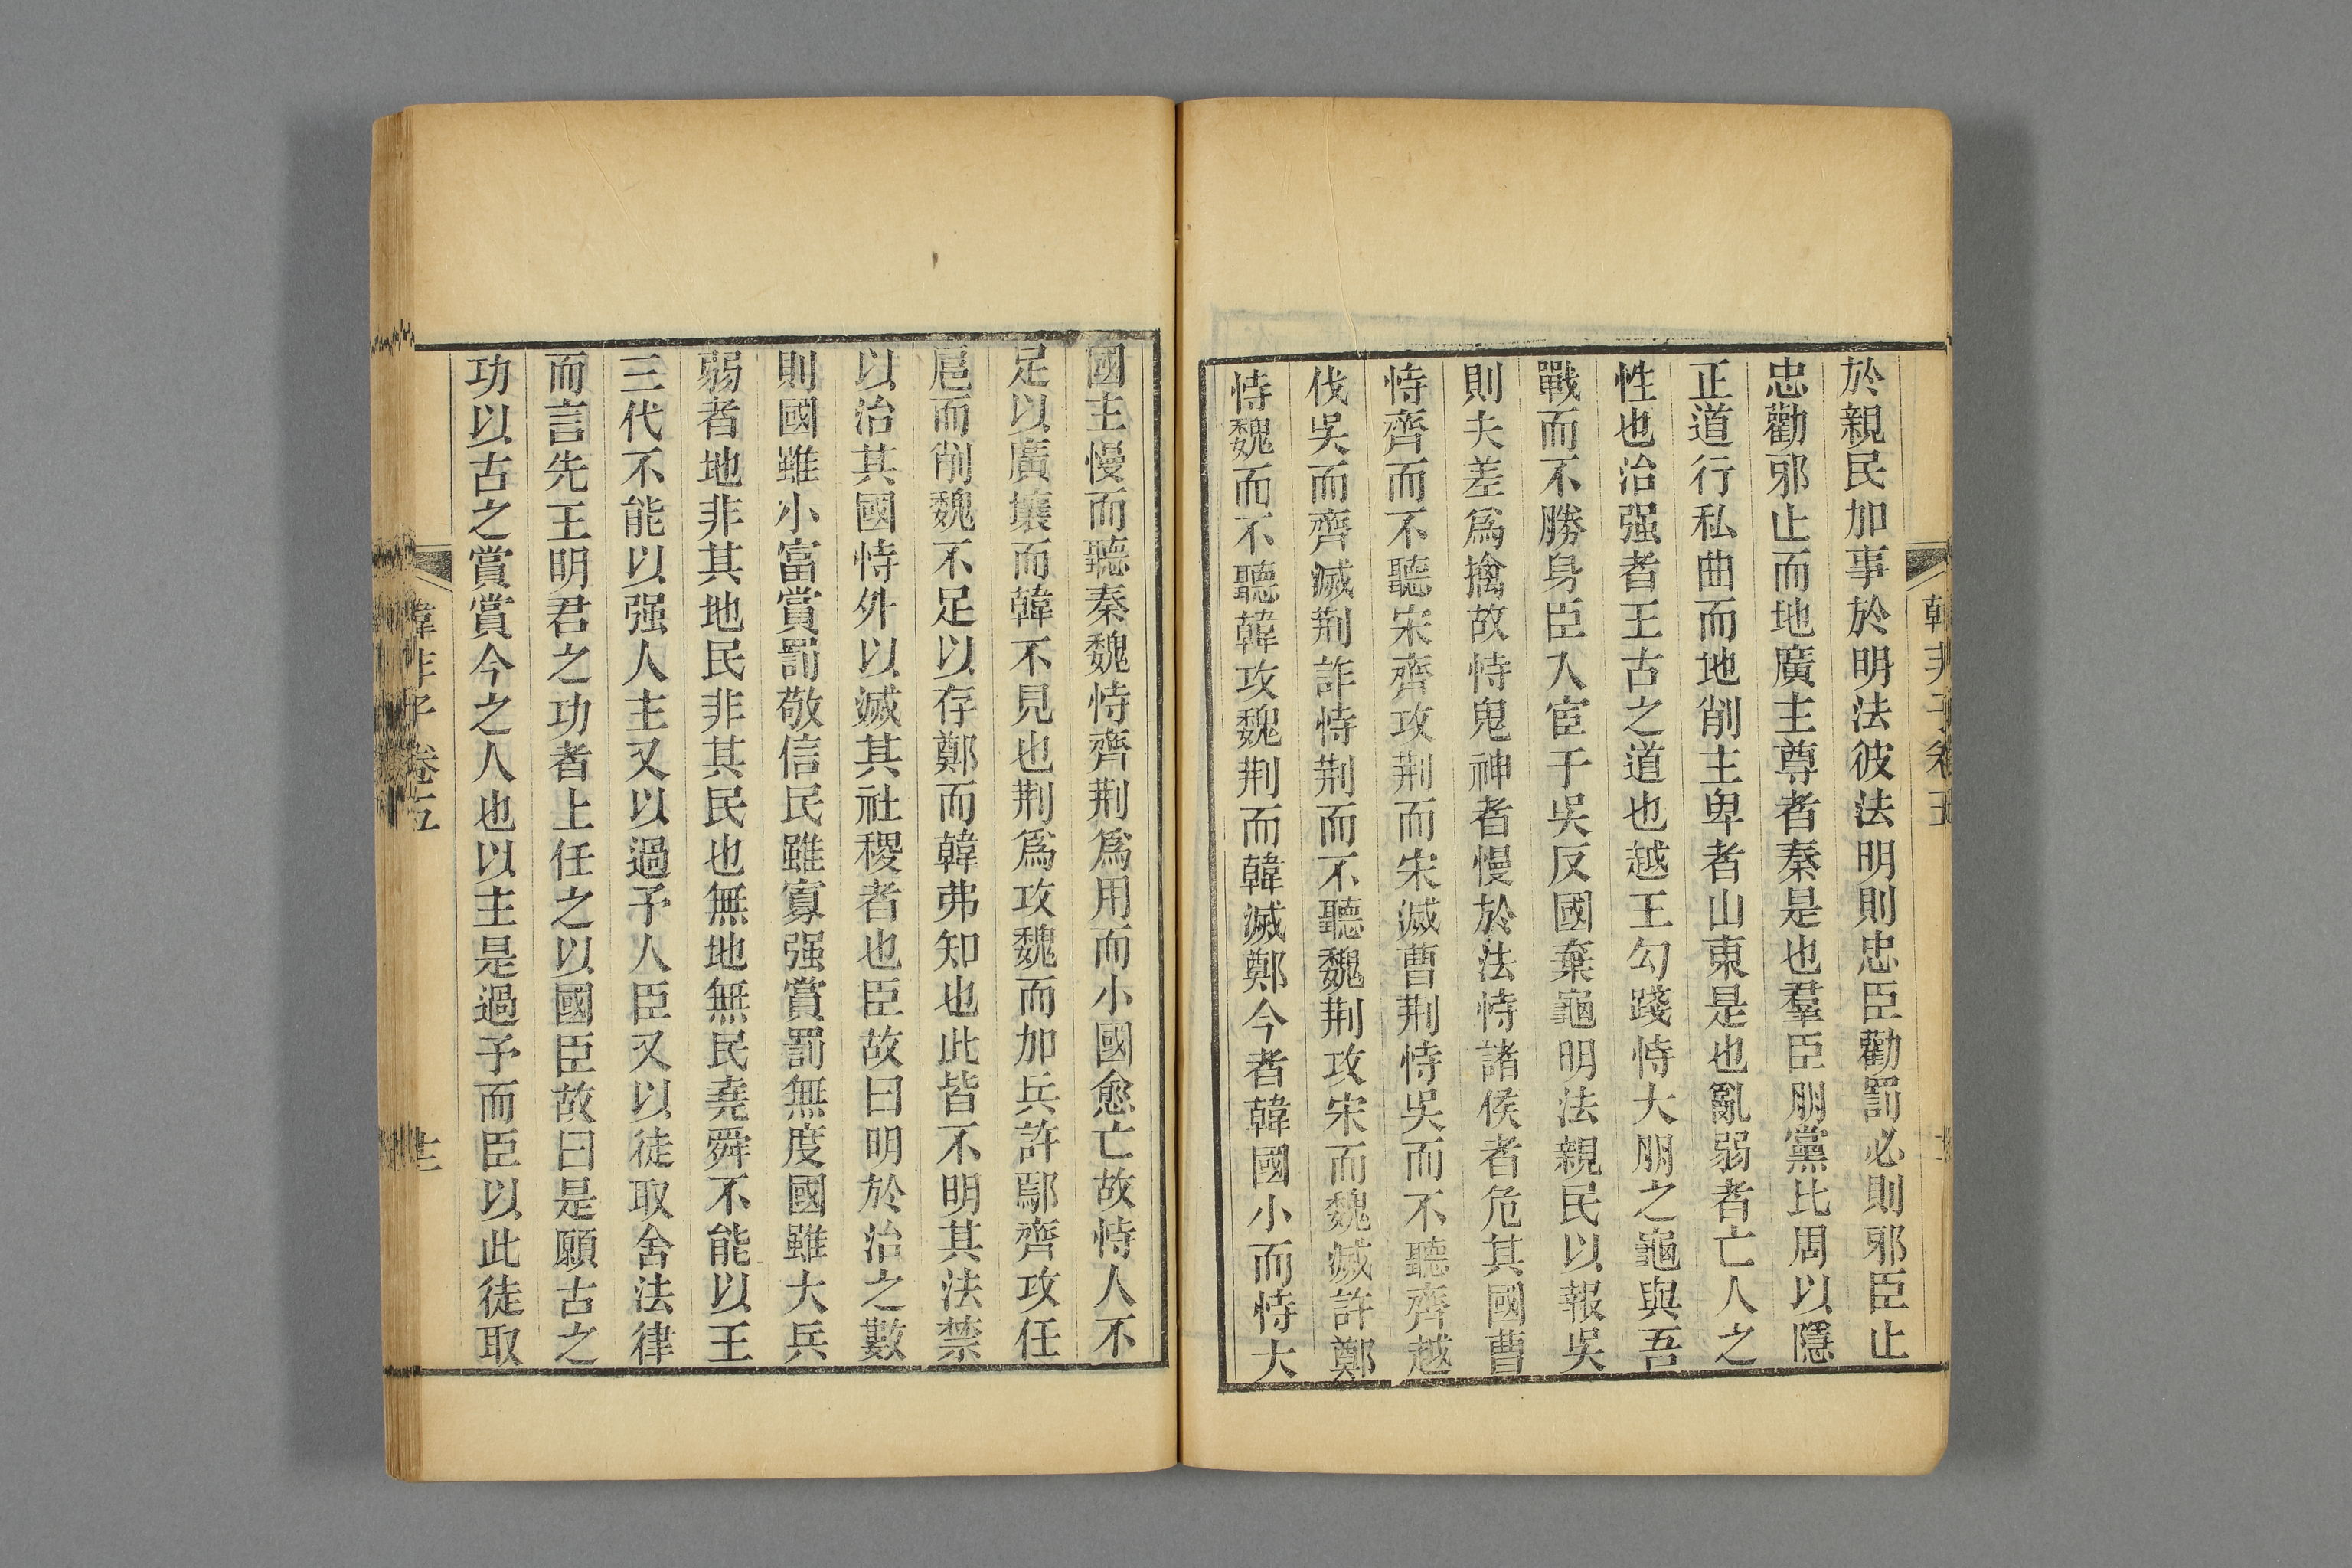 韓非子卷五
於親民加事於明法彼法明則忠臣勸罰必則邪臣止
忠勸邪止而地廣主尊者秦是也羣臣朋黨比周以隱
正道行私曲而地削主卑者山東是也亂弱者亡人之
性也治强者王古之道也越王勾踐恃大朋之龜與吾
戰而不勝身臣入宦于吳反國棄龜明法親民以報吳
則夫差爲擒故恃鬼神者慢於法恃諸侯者危其國曹
恃齊而不聽宋齊攻荆而宋滅曹荆恃吳而不聽齊越
伐吳而齊滅荆許恃荆而不聽魏荆攻宋而魏滅許鄭
恃魏而不聽韓攻魏荆而韓滅鄭今者韓國小而恃大
國主慢而聽秦魏恃齊荆爲用而小國愈亡故恃人不
足以廣壤而韓不見也荆爲攻魏而加兵許鄢齊攻任
扈而削魏不足以存鄭而韓弗知也此皆不明其法禁
以治其國恃外以滅其社稷者也臣故曰明於治之數
則國雖小富賞罰敬信民雖寡强賞罰無度國雖大兵
弱者地非其地民非其民也無地無民堯舜不能以王
三代不能以强人主又以過予人臣又以徒取舍法律
而言先王明君之功者上任之以國臣故曰是願古之
功以古之賞賞今之人也以主是過予而臣以此徒取
韓非子卷五